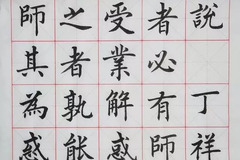 說 丁祥
者必有師
受業解惑
之者孰能
師其為惑